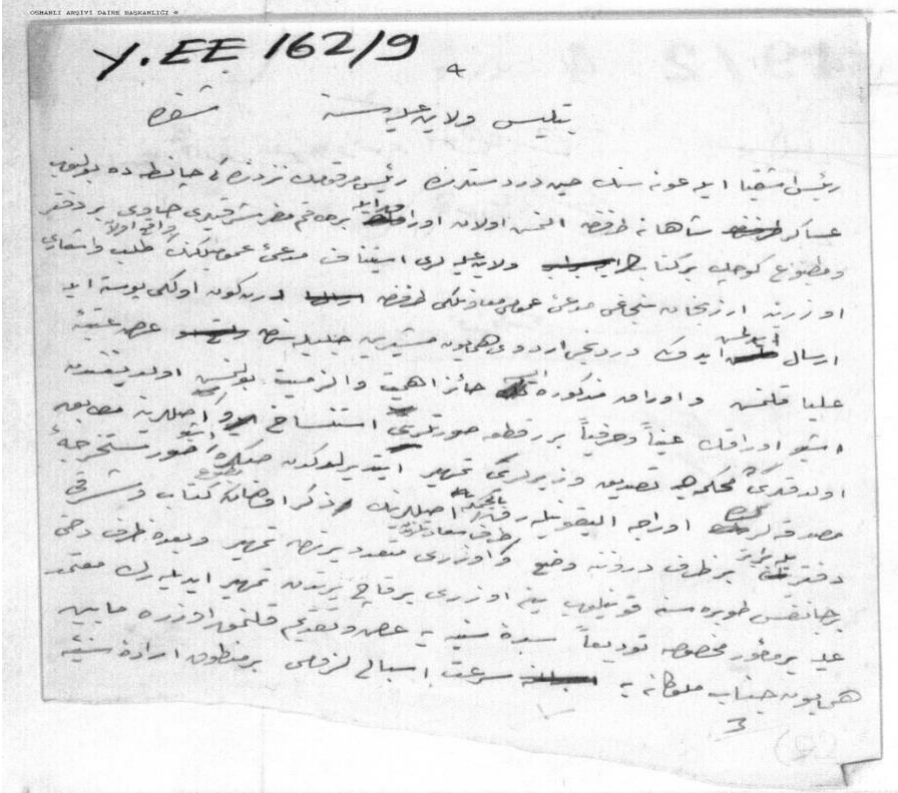 OSMANLI ARŞİVİ DAİRE BAŞKANLIĞI
Y.EE 162/9
بتليس ولايت عليه سنه شفره
رئيس اشقيا ايله عونه سنك حين دردستلرنده رئيس مرقومك نزدنده كى چانطه ده بولنوب
عساكر شاهانه طرفندن النمش اولان اوراق برطاقم مضر شرقيلرى حاوى بر دفتر
و مطبوع كوچك بر كتاب ولايت عليه لرى استيناف مدعئ عموميلكنك طلب و اشعارى
اوزرينه ارزنجان سنجاغى مدعى عمومى معاونلكى طرفندن درت كون اولكى پوسته ايله
ارسال ايدلمش ايدوكى دردنجى اردوى همايون مشيريت جليله سندن عرض عتبهٔ
عليا قلنمش و اوراق مذكوره حائز اهميت والزميت بولنمش اولديغندن
اشبو اوراقك عيناً و حرفياً بر قطعه صورتلرى استنساخ و اصللرينه مطابق
اولدقلرى محكمه جه تصديق و زيرلرى تمهير ايتديرلدكدن صكره اشبو صور مستخرجهٔ
مصدقه لر اوراجه اليقونيله رق اصللرينك ذكر اولنان مطبوع كتاب و شرقى
دفتريله برابر بر ظرف درونه وضع و اوزرى متعدد يرندن تمهير و بعده ظرف دخى
بر جانفس طوربه سنه قونيلوب ينه اوزرى بر قاچ يرندن تمهير ايديله رك معتمد
عليه بر مأمور مخصوصه توديعاً سدهٔ سنيه يه عرض و تقديم قلنمق اوزره مابين
همايون جناب ملوكانه يه سرعت اسبالى لزومى بر منطوق ارادهٔ سنيه
3